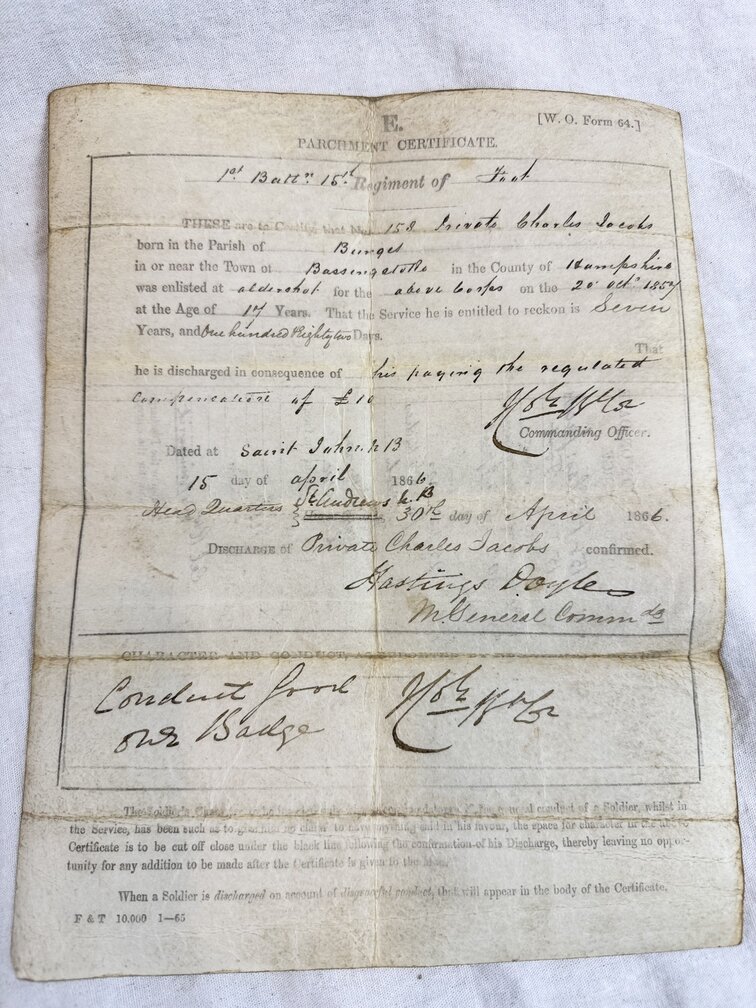 E.
[W. O. Form 64.]
PARCHMENT CERTIFICATE.
1st Battn 15th Regiment of Foot
THESE are to Certify that No 158 Private Charles Jacobs
born in the Parish of Burges
in or near the Town of Bassingstoke in the County of Hampshire
was enlisted at aldershot for the above Corps on the 20 octr 1857
at the Age of 17 Years. That the Service he is entitled to reckon is Seven
Years, and One hundred Eighty two Days.
That
he is discharged in consequence of his paying the regulated
Compensation of £10
Commanding Officer.
Dated at Saint John N B
15 day of april 1866
Head Quarters St Andrews N. B 30th day of April 1866.
DISCHARGE of Private Charles Jacobs confirmed.
Hastings Doyle
MGeneral Commdg
CHARACTER AND CONDUCT,
Conduct Good
one Badge
conduct of a Soldier, whilst in
the Service, has been such as to give him no claim to have anything said in his favour, the space for character in the above
Certificate is to be cut off close under the black line following the confirmation of his Discharge, thereby leaving no oppor-
tunity for any addition to be made after the Certificate is given to the Man.
When a Soldier is discharged on account of disgraceful conduct, that will appear in the body of the Certificate.
F & T 10.000 1—65